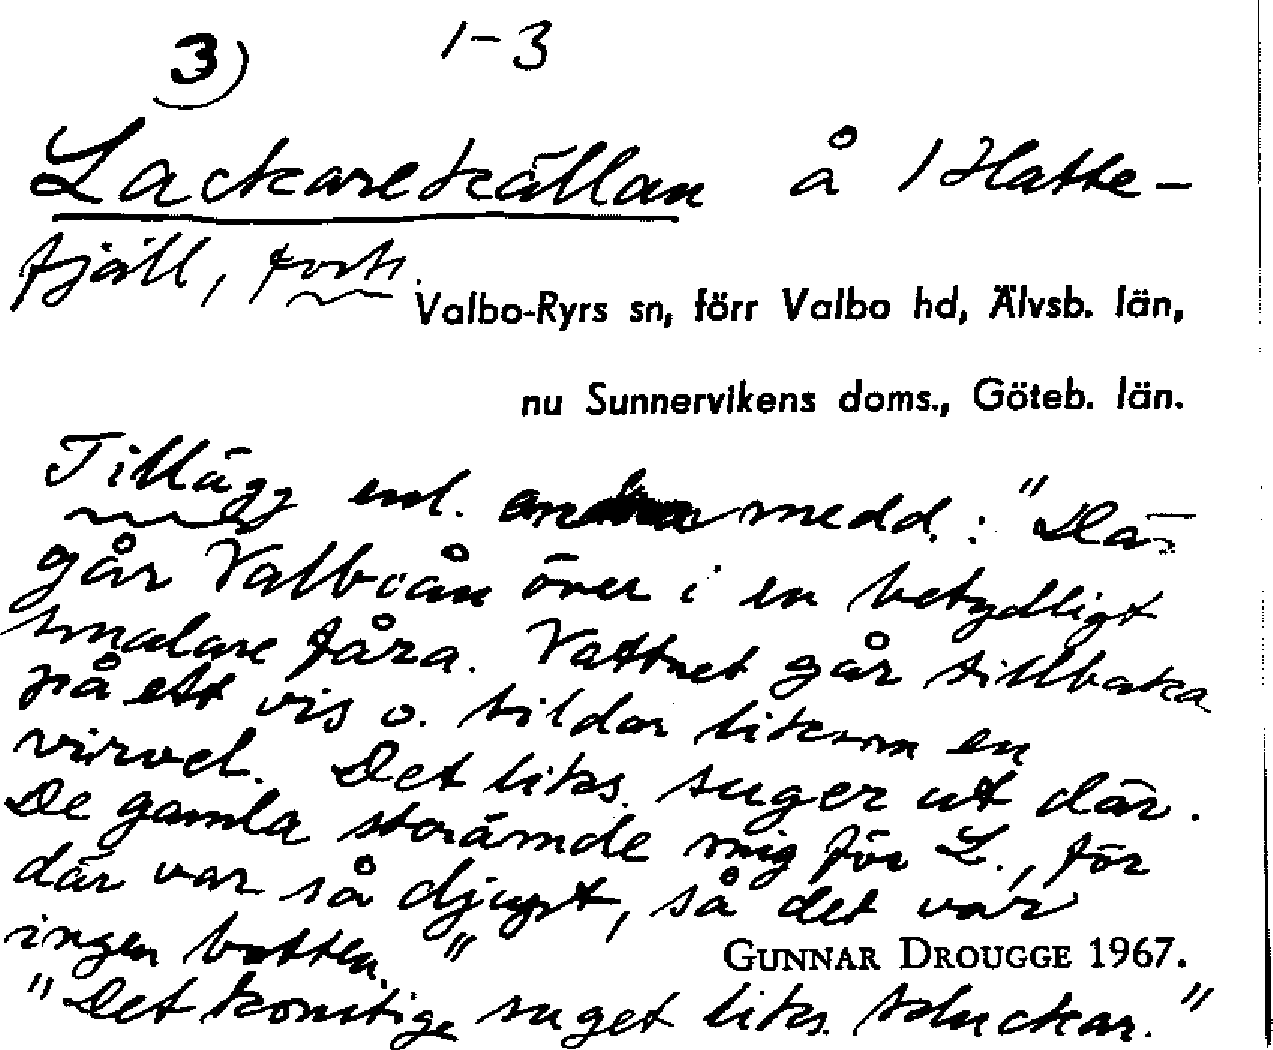 3) 1-3
Lackarekällan å 1 Hatte-
fjäll, forts.
Valbo-Ryrs sn, förr Valbo hd, Älvsb. län,
nu Sunnervikens doms., Göteb. län.
Tillägg enl. medd.: "Där
går Valboån över i en betydligt
smalare fåra. Vattnet går tillbaka
på ett vis o. bildar liksom en
virvel. Det liks. suger ut där.
De gamla skrämde mig för L., för
där var så djupt, så det var
ingen botten."
GUNNAR DROUGGE 1967.
"Det konstige suget liks. skluckar."